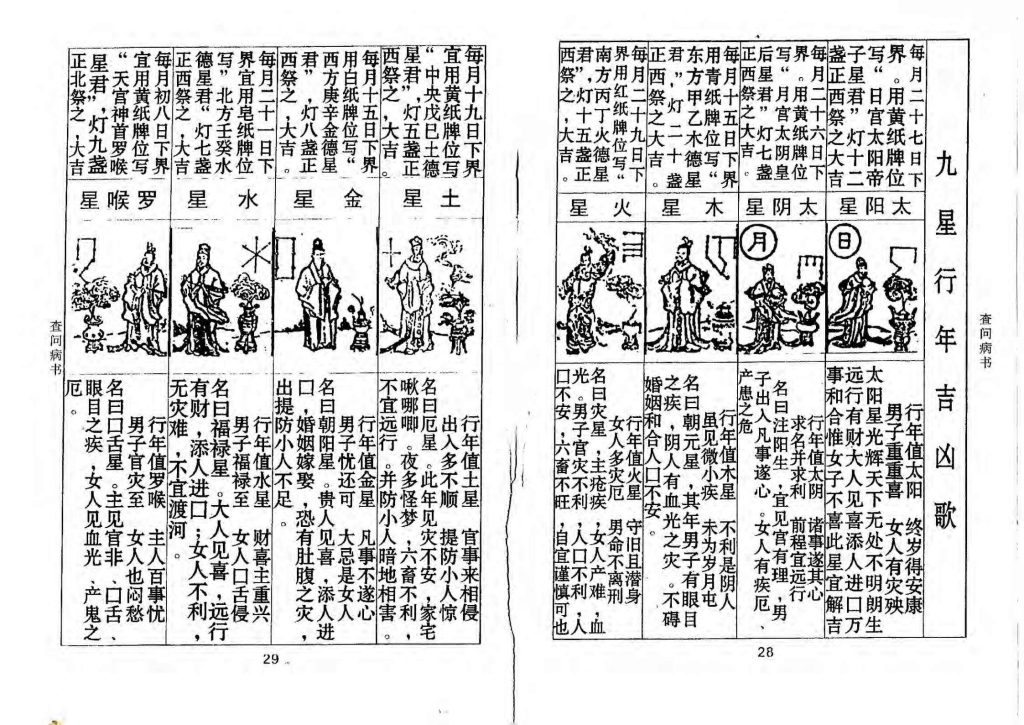 九星行年吉凶歌
每月二十七日下
界。用黄纸牌位
写“日宫太阳帝
子星君”灯十二
盏正西祭之大吉
太阳星
日
行年值太阳　终岁得安康
男子重重喜　女人有灾殃
太阳星光辉天下无处不明朗生
远行有财大人见喜添人进口万
事和合惟女子不喜此星宜解吉
每月二十六日下
界。用黄纸牌位
写“月宫太阴皇
后星君”灯七盏
正西祭之大吉。
太阴星
月
行年值太阴　诸事遂其心
求名并求利　前程宜远行
名曰注阳生，宜见官有理，男
子出入凡事遂心。女人有疾厄、
产患之危
每月十五日下界
用青纸牌位写“
东方甲乙木德星
君”，灯二十盏
正西祭之大吉。
木星
行年值木星　不利是阴人
虽见微小疾　未为岁月屯
名曰朝元星，其年男子有眼目
之疾，阴人有血光之灾。不碍
婚姻和合人口不安。
每月二十九日下
界用红纸牌位写“
南方丙丁火德星
君”，灯十五盏正
西祭之，大吉。
火星
行年值火星　守旧且潜身
女人多灾厄　男命不离刑
名曰灾星，主疮疾，女人产难，血
光。男子官灾不利，人口不利，人
口不安，六畜不旺，自宜谨慎可也
查问病书
28
每月十九日下界
宜用黄纸牌位写
“中央戊巳土德
星君”灯五盏正
西祭之，大吉。
土星
行年值土星　官事来相侵
出入多不顺　提防小人惊
名曰厄星。此年见灾不安，家宅
啾唧唧。夜多怪梦，六畜不利，
不宜远行。并防小人暗地相害。
每月十五日下界
用白纸牌位写“
西方庚辛金德星
君”，灯八盏正
西祭之，大吉。
金星
行年值金星　凡事不遂心
男子忧还可　大忌是女人
名曰朝阳星。贵人见喜，添人进
口，婚姻嫁娶，恐有肚腹之灾，
出提防小人不足。
每月二十一日下
界宜用皂纸牌位
写”北方壬癸水
德星君”灯七盏
正西祭之，大吉
水星
行年值水星　财喜主重兴
男子福禄至　女人口舌侵
名曰福禄星。大人见喜，远行
有财，添人进口；女人不利，
无灾难，不宜渡河。
每月初八日下界
宜用黄纸牌位写
“天宫神首罗喉
星君”，灯九盏
正北祭之，大吉
罗喉星
行年值罗喉　主人百事忧
男子官灾至　女人也闷愁
名曰口舌星。主见官非、口舌、
眼目之疾，女人见血光、产鬼之
厄。
查问病书
29